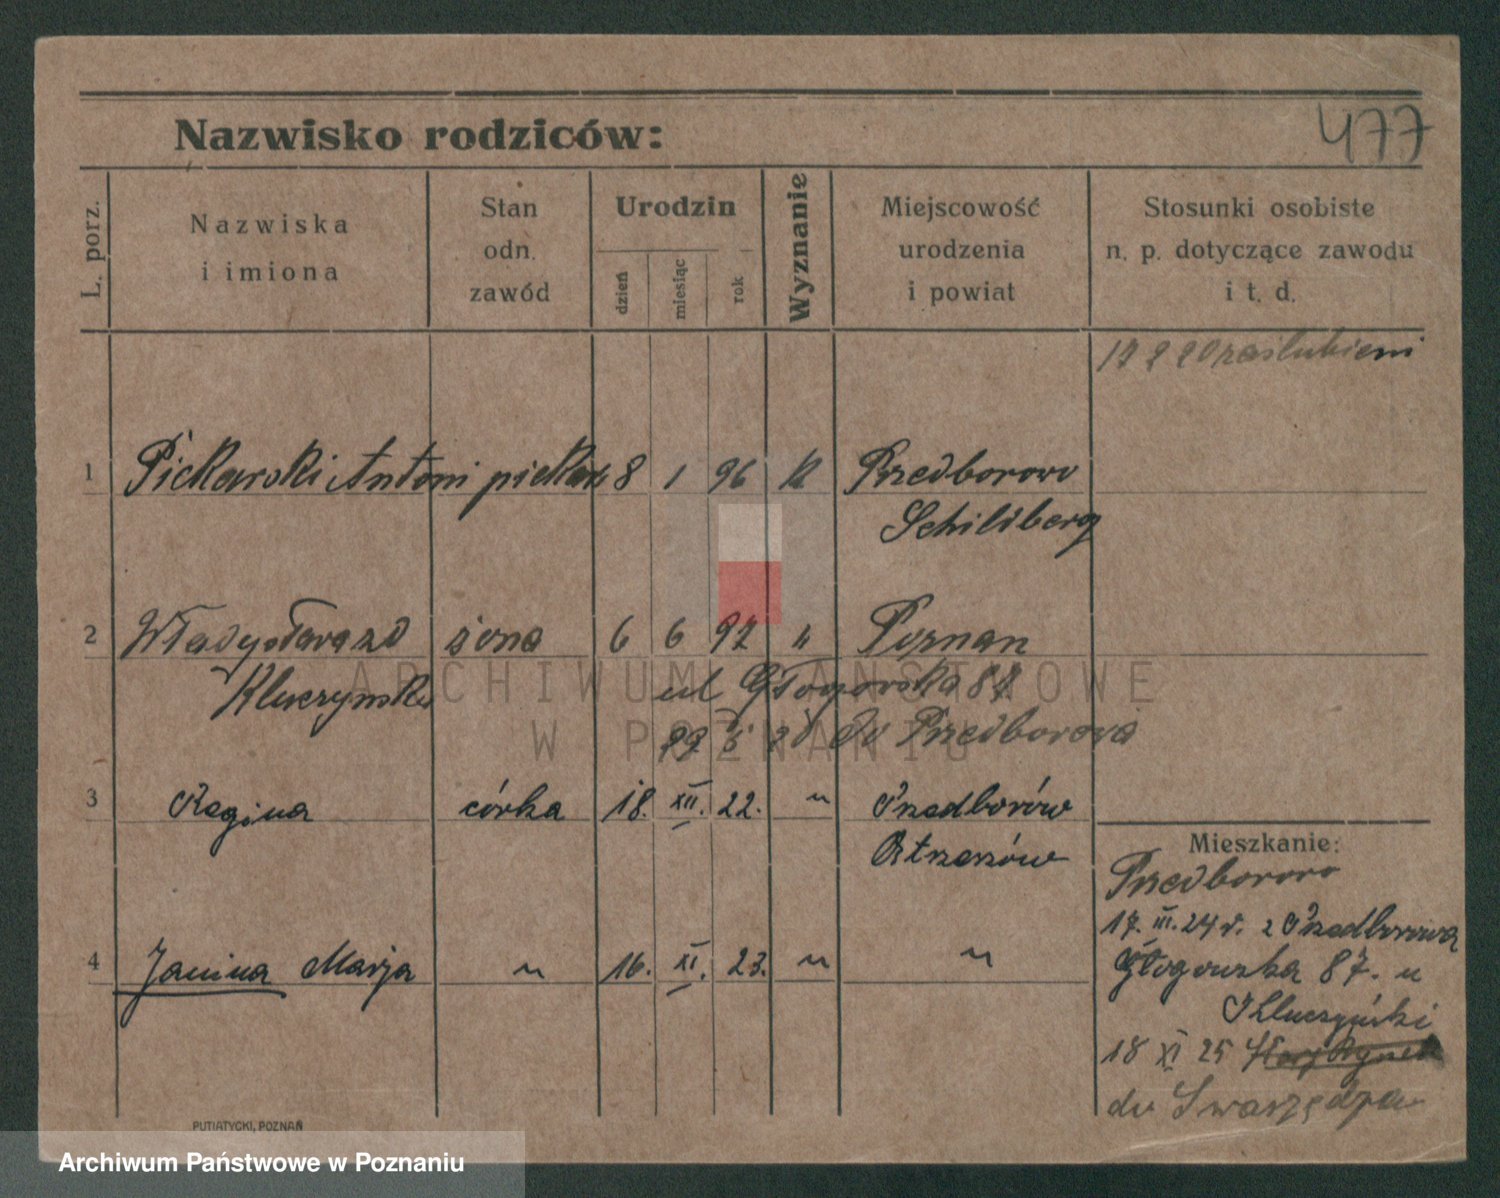 477
Nazwisko rodziców:
L. porz.
Nazwiska
i imiona
Stan
odn.
zawód
Urodzin
dzień
miesiąc
rok
Wyznanie
Miejscowość
urodzenia
i powiat
Stosunki osobiste
n. p. dotyczące zawodu
i t. d.
zaślubieni
1 Piekarski Antoni piekarz 8 1 96 k Przedborowo
Schildberg
2 Władysława zd żona 6 6 97 " Poznan
Kluczynska
ul Głogowska 87
do Przedborowa
3 Regina córka 18. XII. 22. " Przedborów
Ostrzeszów
4 Janina Marja " 16. XI. 23. " "
Mieszkanie:
Przedborowo
17. III. 24 r. z Przedborowa
Głogowska 87. u
Kluczyński
18 XI 25
do Swarzędza
ARCHIWUM PAŃSTWOWE
W POZNANIU
PUTIATYCKI, POZNAŃ
Archiwum Państwowe w Poznaniu